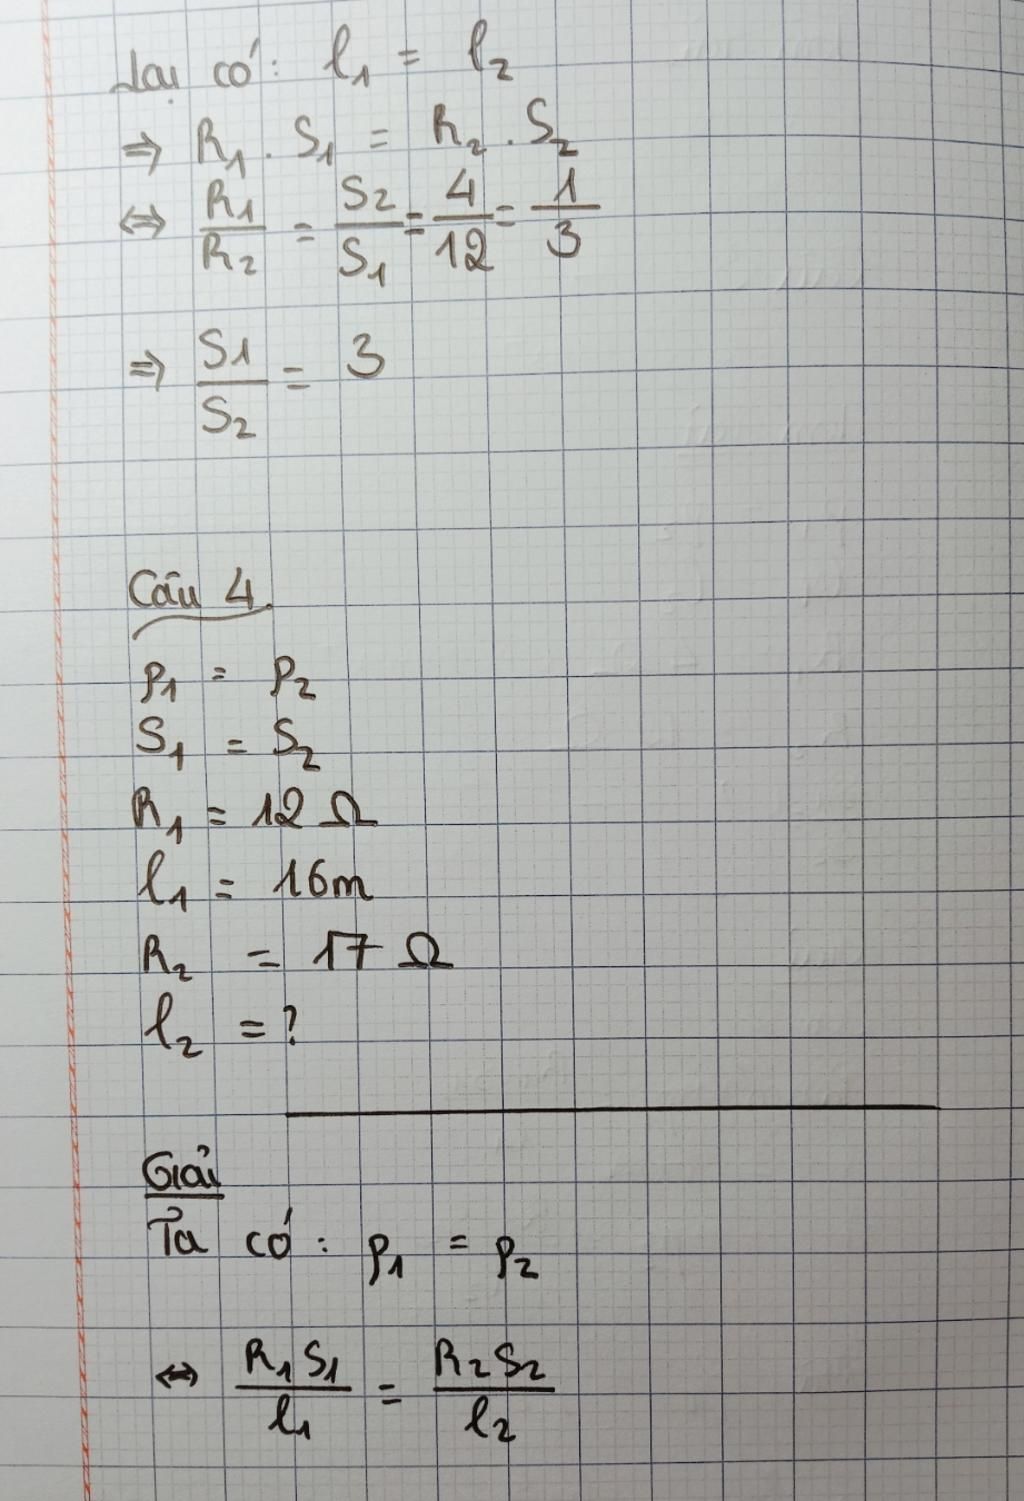 Lại có: l₁ = l₂
⇒ R₁ . S₁ = R₂ . S₂
⇔ R₁/R₂ = S₂/S₁ = 4/12 = 1/3
⇒ S1/S₂ = 3
Câu 4
ρ₁ = ρ₂
S₁ = S₂
R₁ = 12 Ω
l₁ = 16m
R₂ = 17 Ω
l₂ = ?
Giải
Ta có : ρ₁ = ρ₂
⇔ R₁S₁/l₁ = R₂S₂/l₂